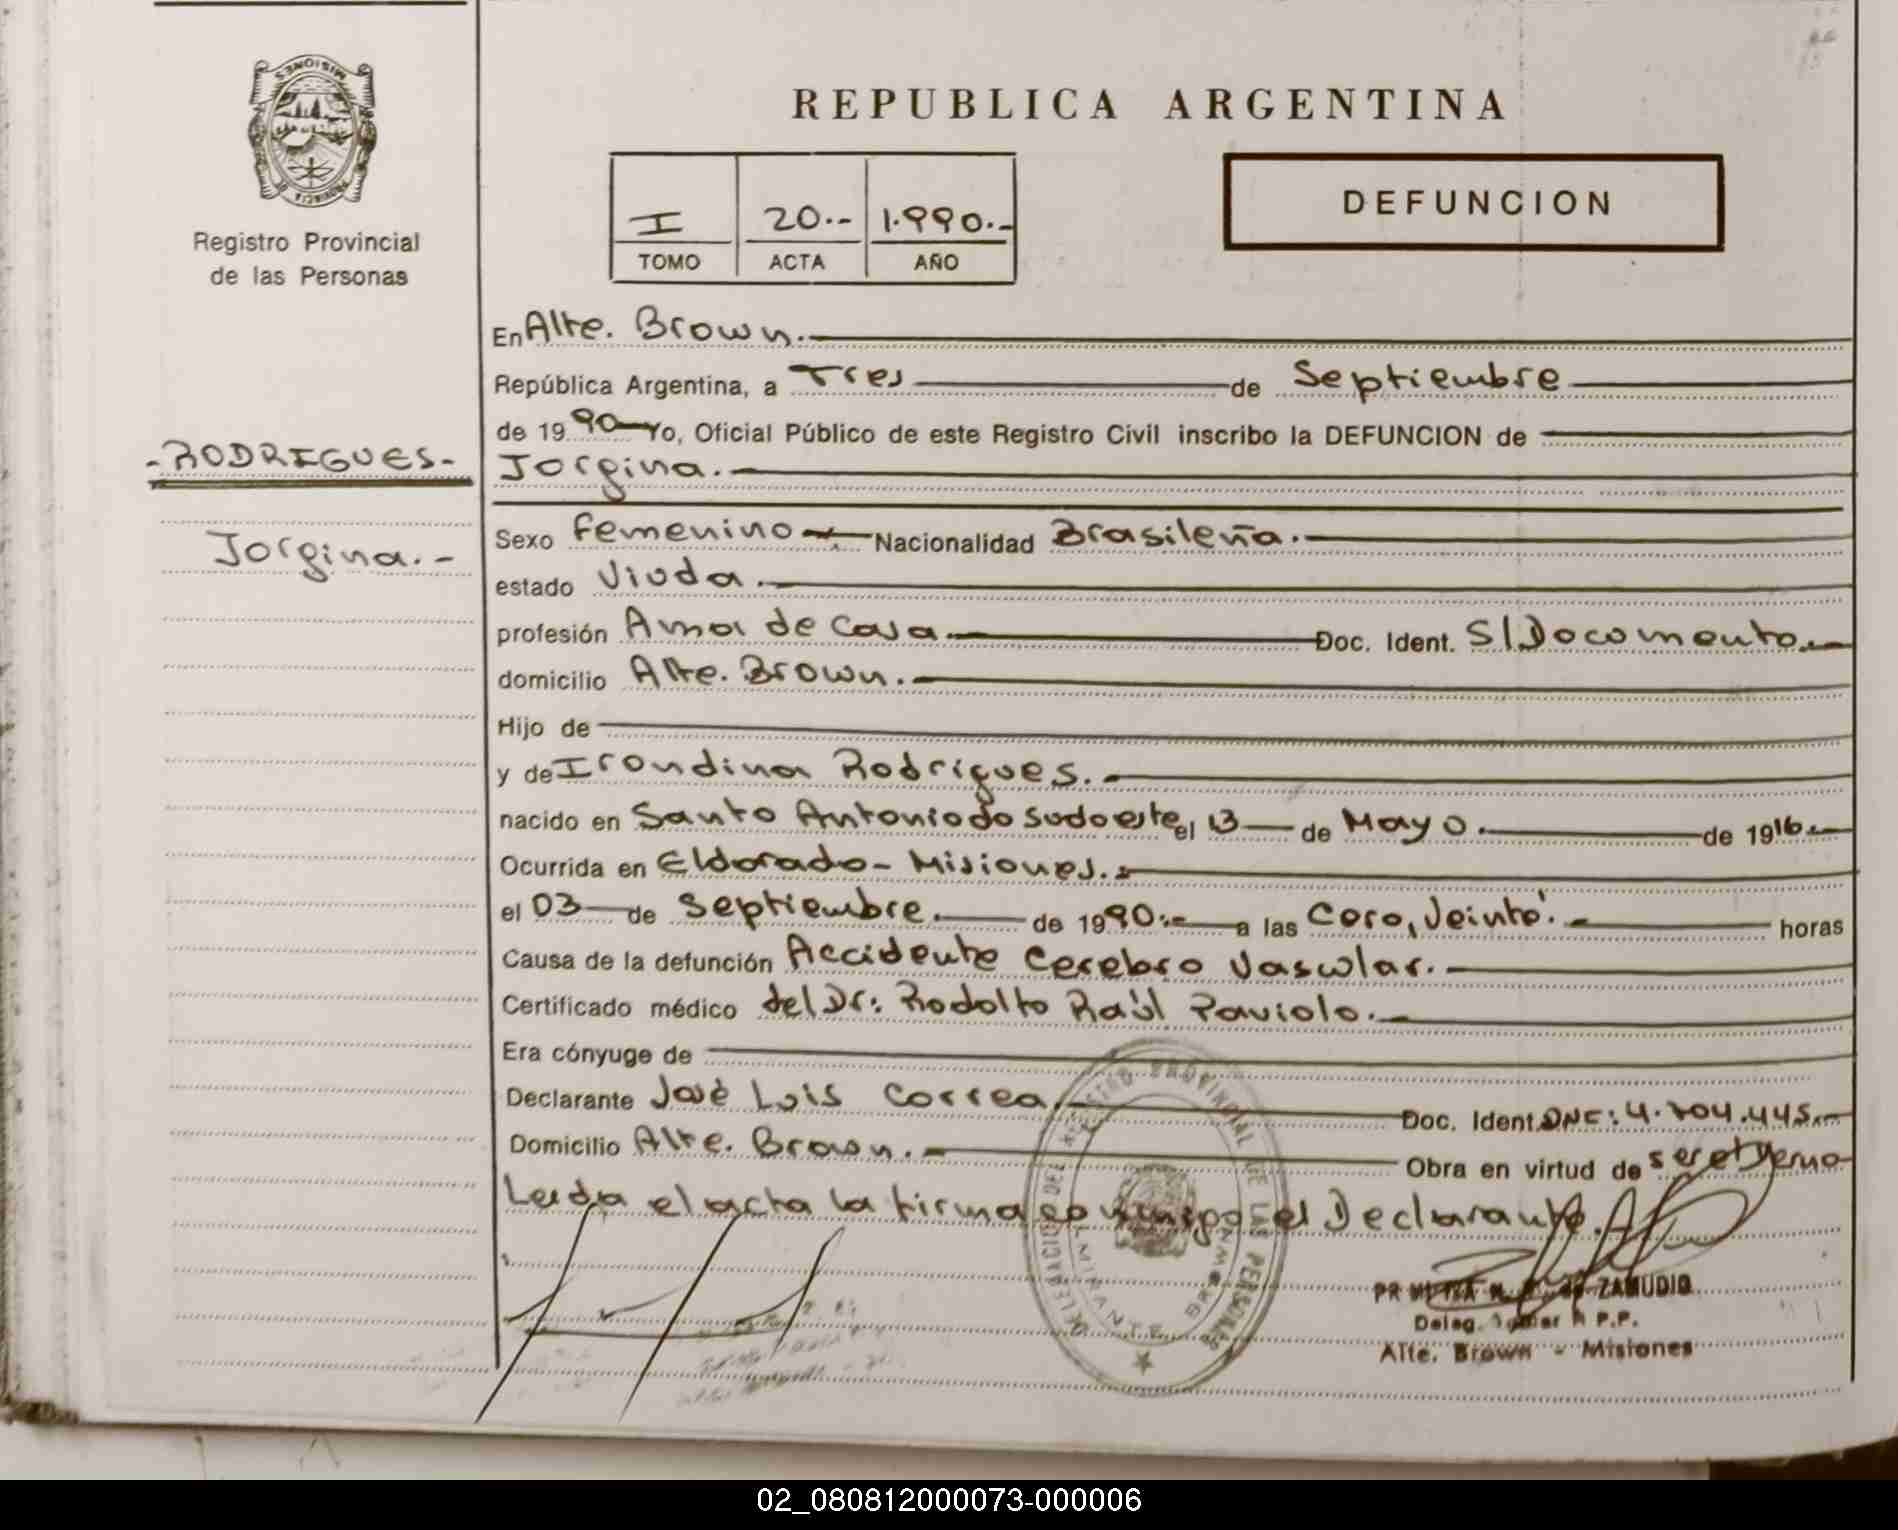 MISIONES
PROVINCIA DE
Registro Provincial
de las Personas
REPUBLICA ARGENTINA
DEFUNCION
I 20.- 1.990.-
TOMO ACTA AÑO
En Alte. Brown.
República Argentina, a Tres de Septiembre
de 1990 Yo, Oficial Público de este Registro Civil inscribo la DEFUNCION de
-RODRIGUES-
Jorgina.
Jorgina.-
Sexo femenino Nacionalidad Brasileña.
estado Viuda.
profesión Ama de Casa Doc. Ident. S/Documento.
domicilio Alte. Brown.
Hijo de
y de Irondina Rodrigues.
nacido en Santo Antonio do Sudoeste el 13 de Mayo. de 1916.
Ocurrida en Eldorado - Misiones.
el 03 de Septiembre. de 1990.- a las Cero, Veinte'. horas
Causa de la defunción Accidente Cerebro Vascular.
Certificado médico del Dr: Rodolfo Raúl Paviolo.
Era cónyuge de
Declarante José Luis Correa. Doc. Ident. DNI: 4.704.445.-
Domicilio Alte. Brown. Obra en virtud de ser el Yerno
Leida el acta la firma conmigo el Declarante.
DELEGACION DEL REGISTRO PROVINCIAL DE LAS PERSONAS
ALMIRANTE BROWN
ZAMUDIO
Deleg. R P.P.
Alte. Brown - Misiones
02_080812000073-000006